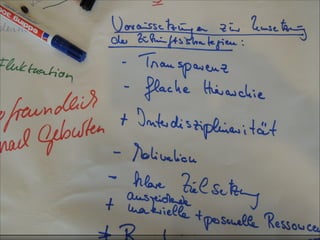 edding
Voraussetzungen zur Umsetzung
der Zukunftsstrategien:
- Transparenz
- flache Hierarchie
+ Interdisziplinarität
- Motivation
- klare Zielsetzung
+ ausreichende
materielle + personelle Ressourcen
Fluktuation
freundlich
Geburten